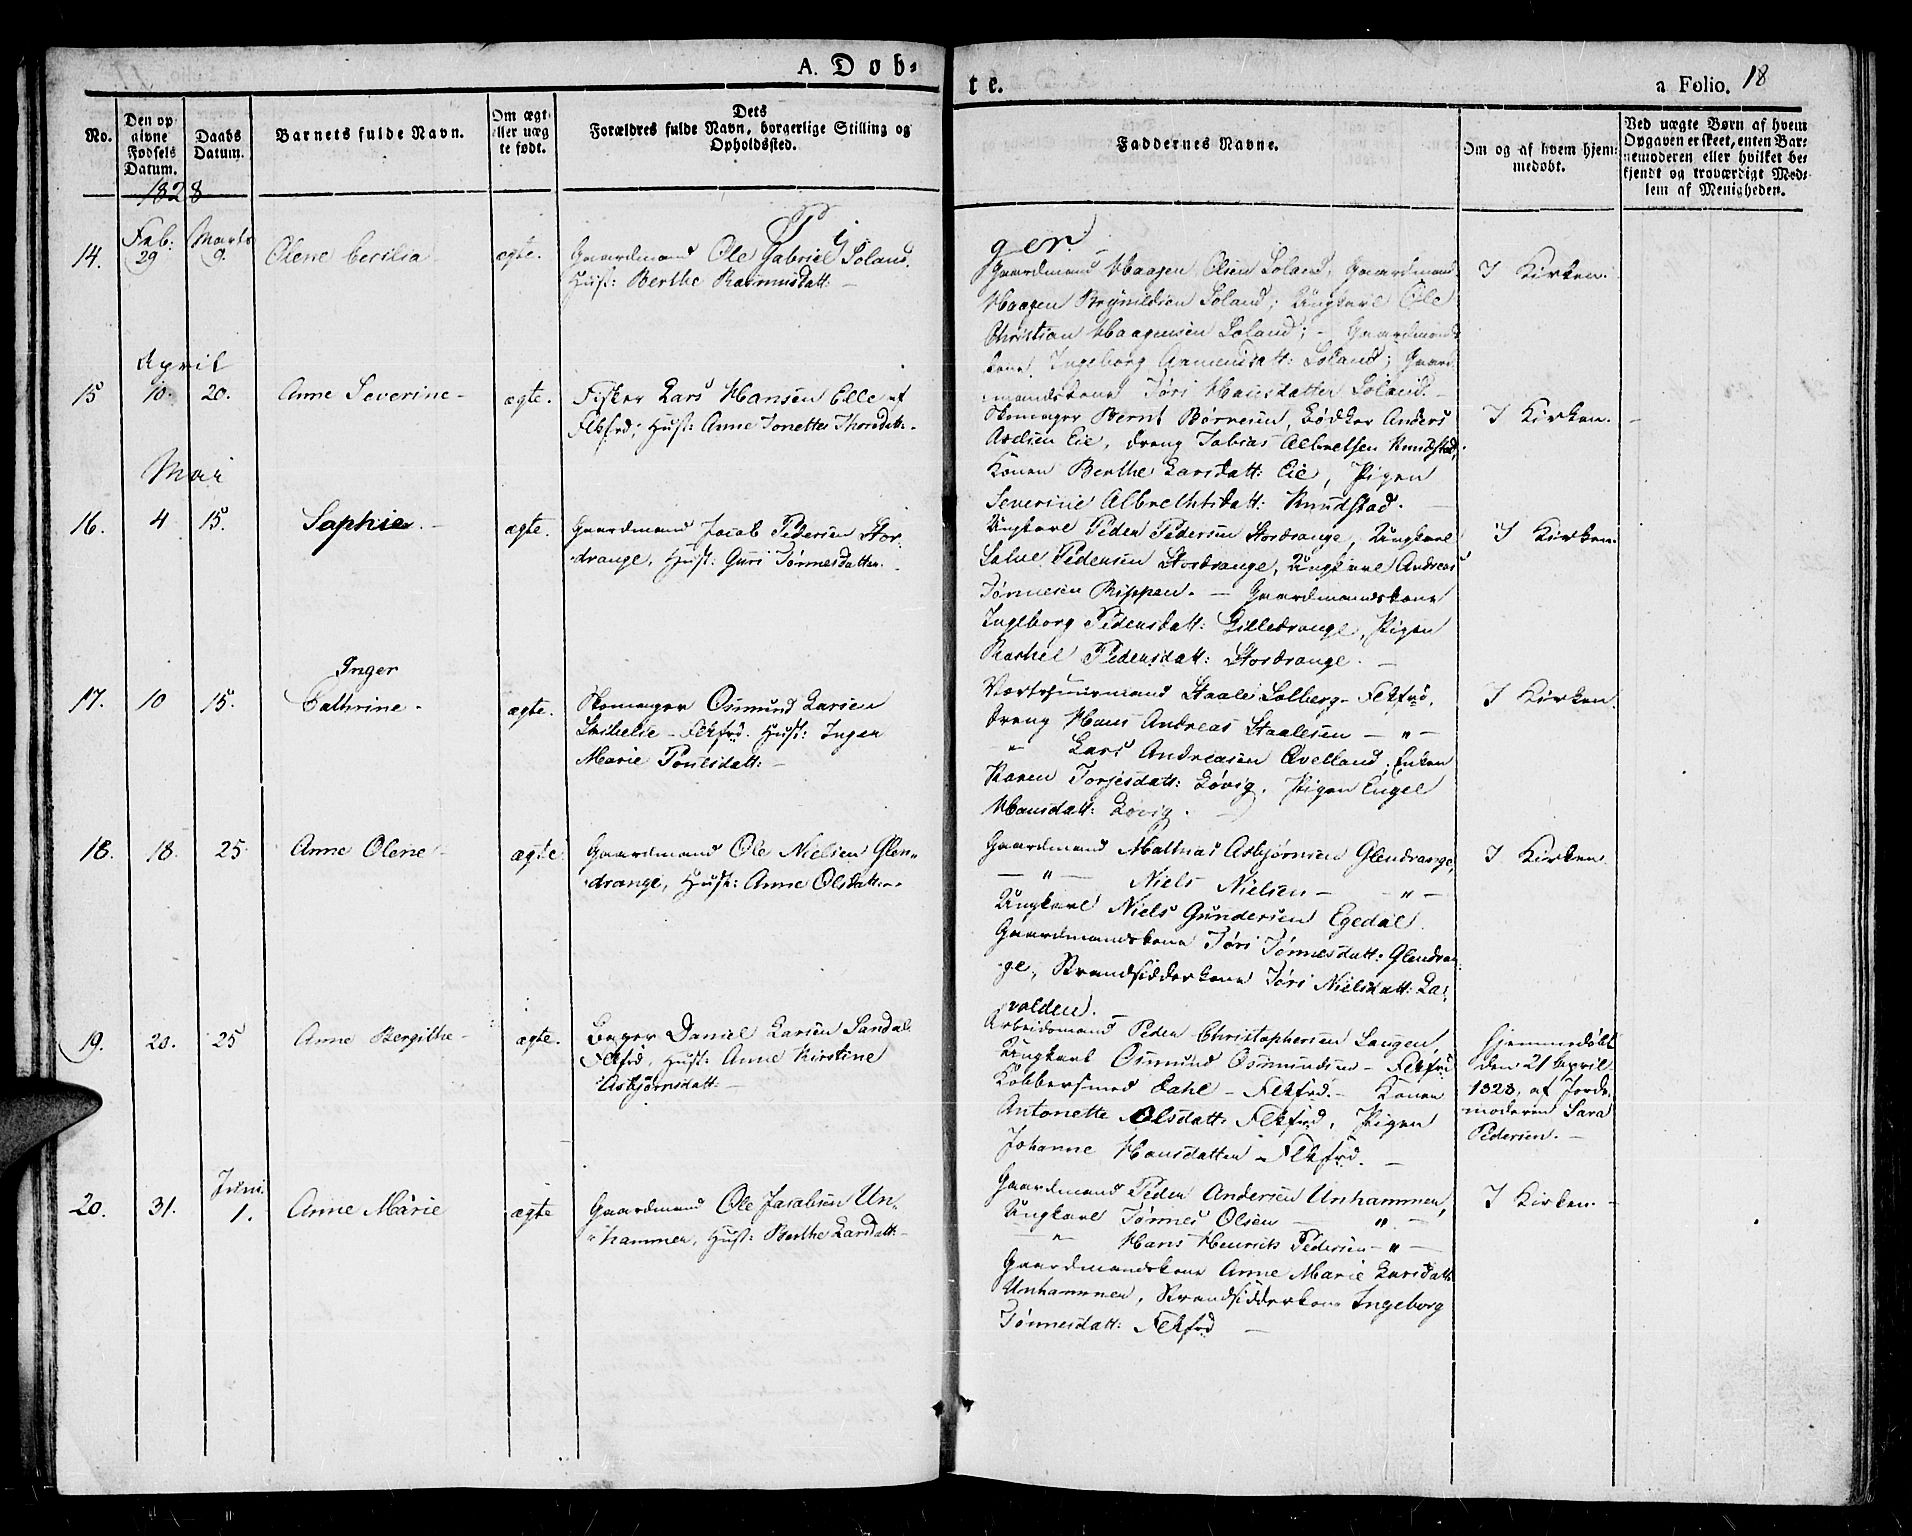 A. Døb=
te.
a Folio. 18
No.
Den op
givne
Fødsels
Datum.
Daabs
Datum.
Barnets fulde Navn.
Om ægt
eller uæg
te født.
Dets
Forældres fulde Navn, borgerlige Stilling og
Opholdssted.
Faddernes Navne.
Om og af hvem hjem=
medøbt.
Ved uægte Børn af hvem
Opgaven er skeet, enten Bar=
nemoderen eller hvilket be=
kjendt og troværdigt Med=
lem af Menigheden.
1828
14.
Feb:
29
Marts
9.
Olene Cecilia
ægte.
Gaardmand Ole Gabriel Soland,
Hust: Berthe Rasmusdatt: —
Gaardmand Haagen Olsen Soland, Gaardmand
Haagen Soland; Ungkarl Ole
Christian Haagensen Soland; - Gaardmands
kone Ingeborg Soland; Gaard
mandskone Jøri Hansdatter Soland. -
I Kirken.
April
15
10.
20.
Anne Severine -
ægte.
Fisker Lars Hansen Elle af
Flkfrd; Hust: Anne Jonette Thorsdatt: -
Skomager Bernt Børresen, Bødker Anders
Eie, dreng Tobias Albretsen Rundstad,
Konen Berthe Larsdatt: Eie, Pigen
Severine Albrethtsdatt: Rundstad.
I Kirken.
Mai
16.
4
15.
Sophie.
ægte.
Gaardmand Jacob Pedersen Stor-
drange, Hust: Guri Tørmesdatter.
Ungkarl Peder Pedersen Stordrange, Ungkarl
Salve Pedersen Stordrange, Ungkarl Andreas
Tønnesen Rippen. - Gaardmandskone
Ingeborg Pedersdatt: Lilledrange, Pigen
Rachel Pedersdatt: Stordrange. -
I Kirken.
17.
10
15.
Inger
Cathrine -
ægte.
Skomager Osmund Larsen
- Flkfrd. Hust: Inger
Marie Poulsdatt: -
Staale Solberg - Flkfrd,
dreng Hans Andreas Staalesen — „ —
„ Lars Andreasen Qvelland; Enken
Karen Torjesdatt: Løvig, Pigen Engel
Hansdatt: Løvig.
I Kirken.
18.
18.
25.
Anne Olene -
ægte
Gaardmand Ole Nielsen Glen-
drange, Hust: Anne Olsdatt: -
Gaardmand Mathias Asbjørnsen Glendrange,
— „ — Niels Nielsen — „ —
Ungkarl Niels Gundersen Egedal.
Gaardmandskone Jøri Tønnesdatt: Glendran-
ge, Strandsidderkone Jøri Nielsdatt: La-
volden.
I Kirken.
19.
20.
25
Anne Bergithe -
ægte.
Bager Daniel Larsen Sandal
Flkfrd, Hust: Anne Kirstine
Asbjørnsdatt. -
Arbeidsmand Peder Christophersen Langen,
Ungkarl Osmund Osmundsen - Flkfrd
Kobbersmed Dahl - Flkfrd. - Konen
Antonette Olsdatt: Flkfrd, Pigen
Johanne Hansdatter - Flkfrd. -
Hjemmedøbt
den 21 April
1828, af Jorde-
moderen Sara
Pedersen. -
20.
31.
Juni
1.
Anne Marie
ægte
Gaardmand Ole Jacobsen Un-
hammer, Hust: Berthe Larsdatt: -
Gaardmand Peder Andersen Unhammer,
Ungkarl Tønnes Olsen — „ —
„ Hans Henrick Pedersen - „ -
Gaardmandskone Anne Marie Larsdatt:
Unhammer, Strandsidderkone Ingeborg
Tønnesdatt: Flkfrd —
I Kirken. -